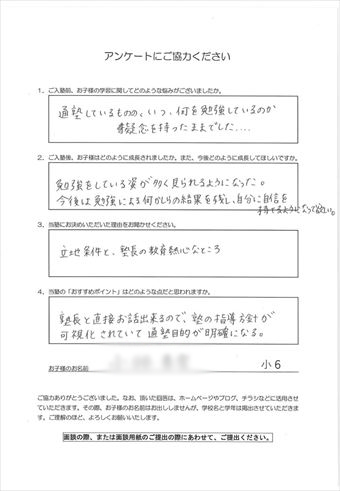 アンケートにご協力ください
1．ご入塾前、お子様の学習に関してどのような悩みがございましたか。
通塾しているものの、いつ、何を勉強しているのか
疑念を持ったままでした....
2．ご入塾後、お子様はどのように成長されましたか。また、今後どのように成長してほしいですか。
勉強をしている姿が多く見られるようになった。
今後は勉強による何かしらの結果を残し、自分に自信を
持てるようになって欲しい。
3．当塾にお決めいただいた理由をお聞かせください。
立地条件と、塾長の教育熱心なところ
4．当塾の「おすすめポイント」はどのような点だと思われますか。
塾長と直接お話出来るので、塾の指導方針が
可視化されていて通塾目的が明確になる。
お子様のお名前
小6
ご協力ありがとうございました。なお、頂いた回答は、ホームページやブログ、チラシなどに活用させ
ていただきます。その際、お子様のお名前はお出ししませんが、学校名と学年は掲出させていただきま
す。ご理解のほど、よろしくお願いいたします。
面談の際、または面談用紙のご提出の際にあわせて、ご提出ください。